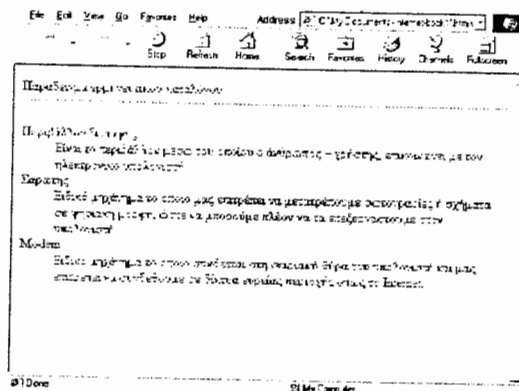 File Edit View Go Favorites Help Address C:\My Documents\
Stop Refresh Home Search Favorites History Channels Fullscreen
Παράδειγμα ερμηνευτικών καταλόγων
Περιβάλλον διεπαφής
Είναι το περιβάλλον μέσω του οποίου ο άνθρωπος – χρήστης, επικοινωνεί με τον
ηλεκτρονικό υπολογιστή
Σαρωτής
Ειδικό μηχάνημα το οποίο μας επιτρέπει να μετατρέπουμε φωτογραφίες ή σχήματα
σε ψηφιακή μορφή, ώστε να μπορούμε πλέον να τα επεξεργαστούμε στον
υπολογιστή
Modem
Ειδικό μηχάνημα το οποίο συνδέεται στη σειριακή θύρα του υπολογιστή και μας
επιτρέπει να συνδεθούμε σε δίκτυα ευρείας περιοχής όπως το Internet.
Done My Computer